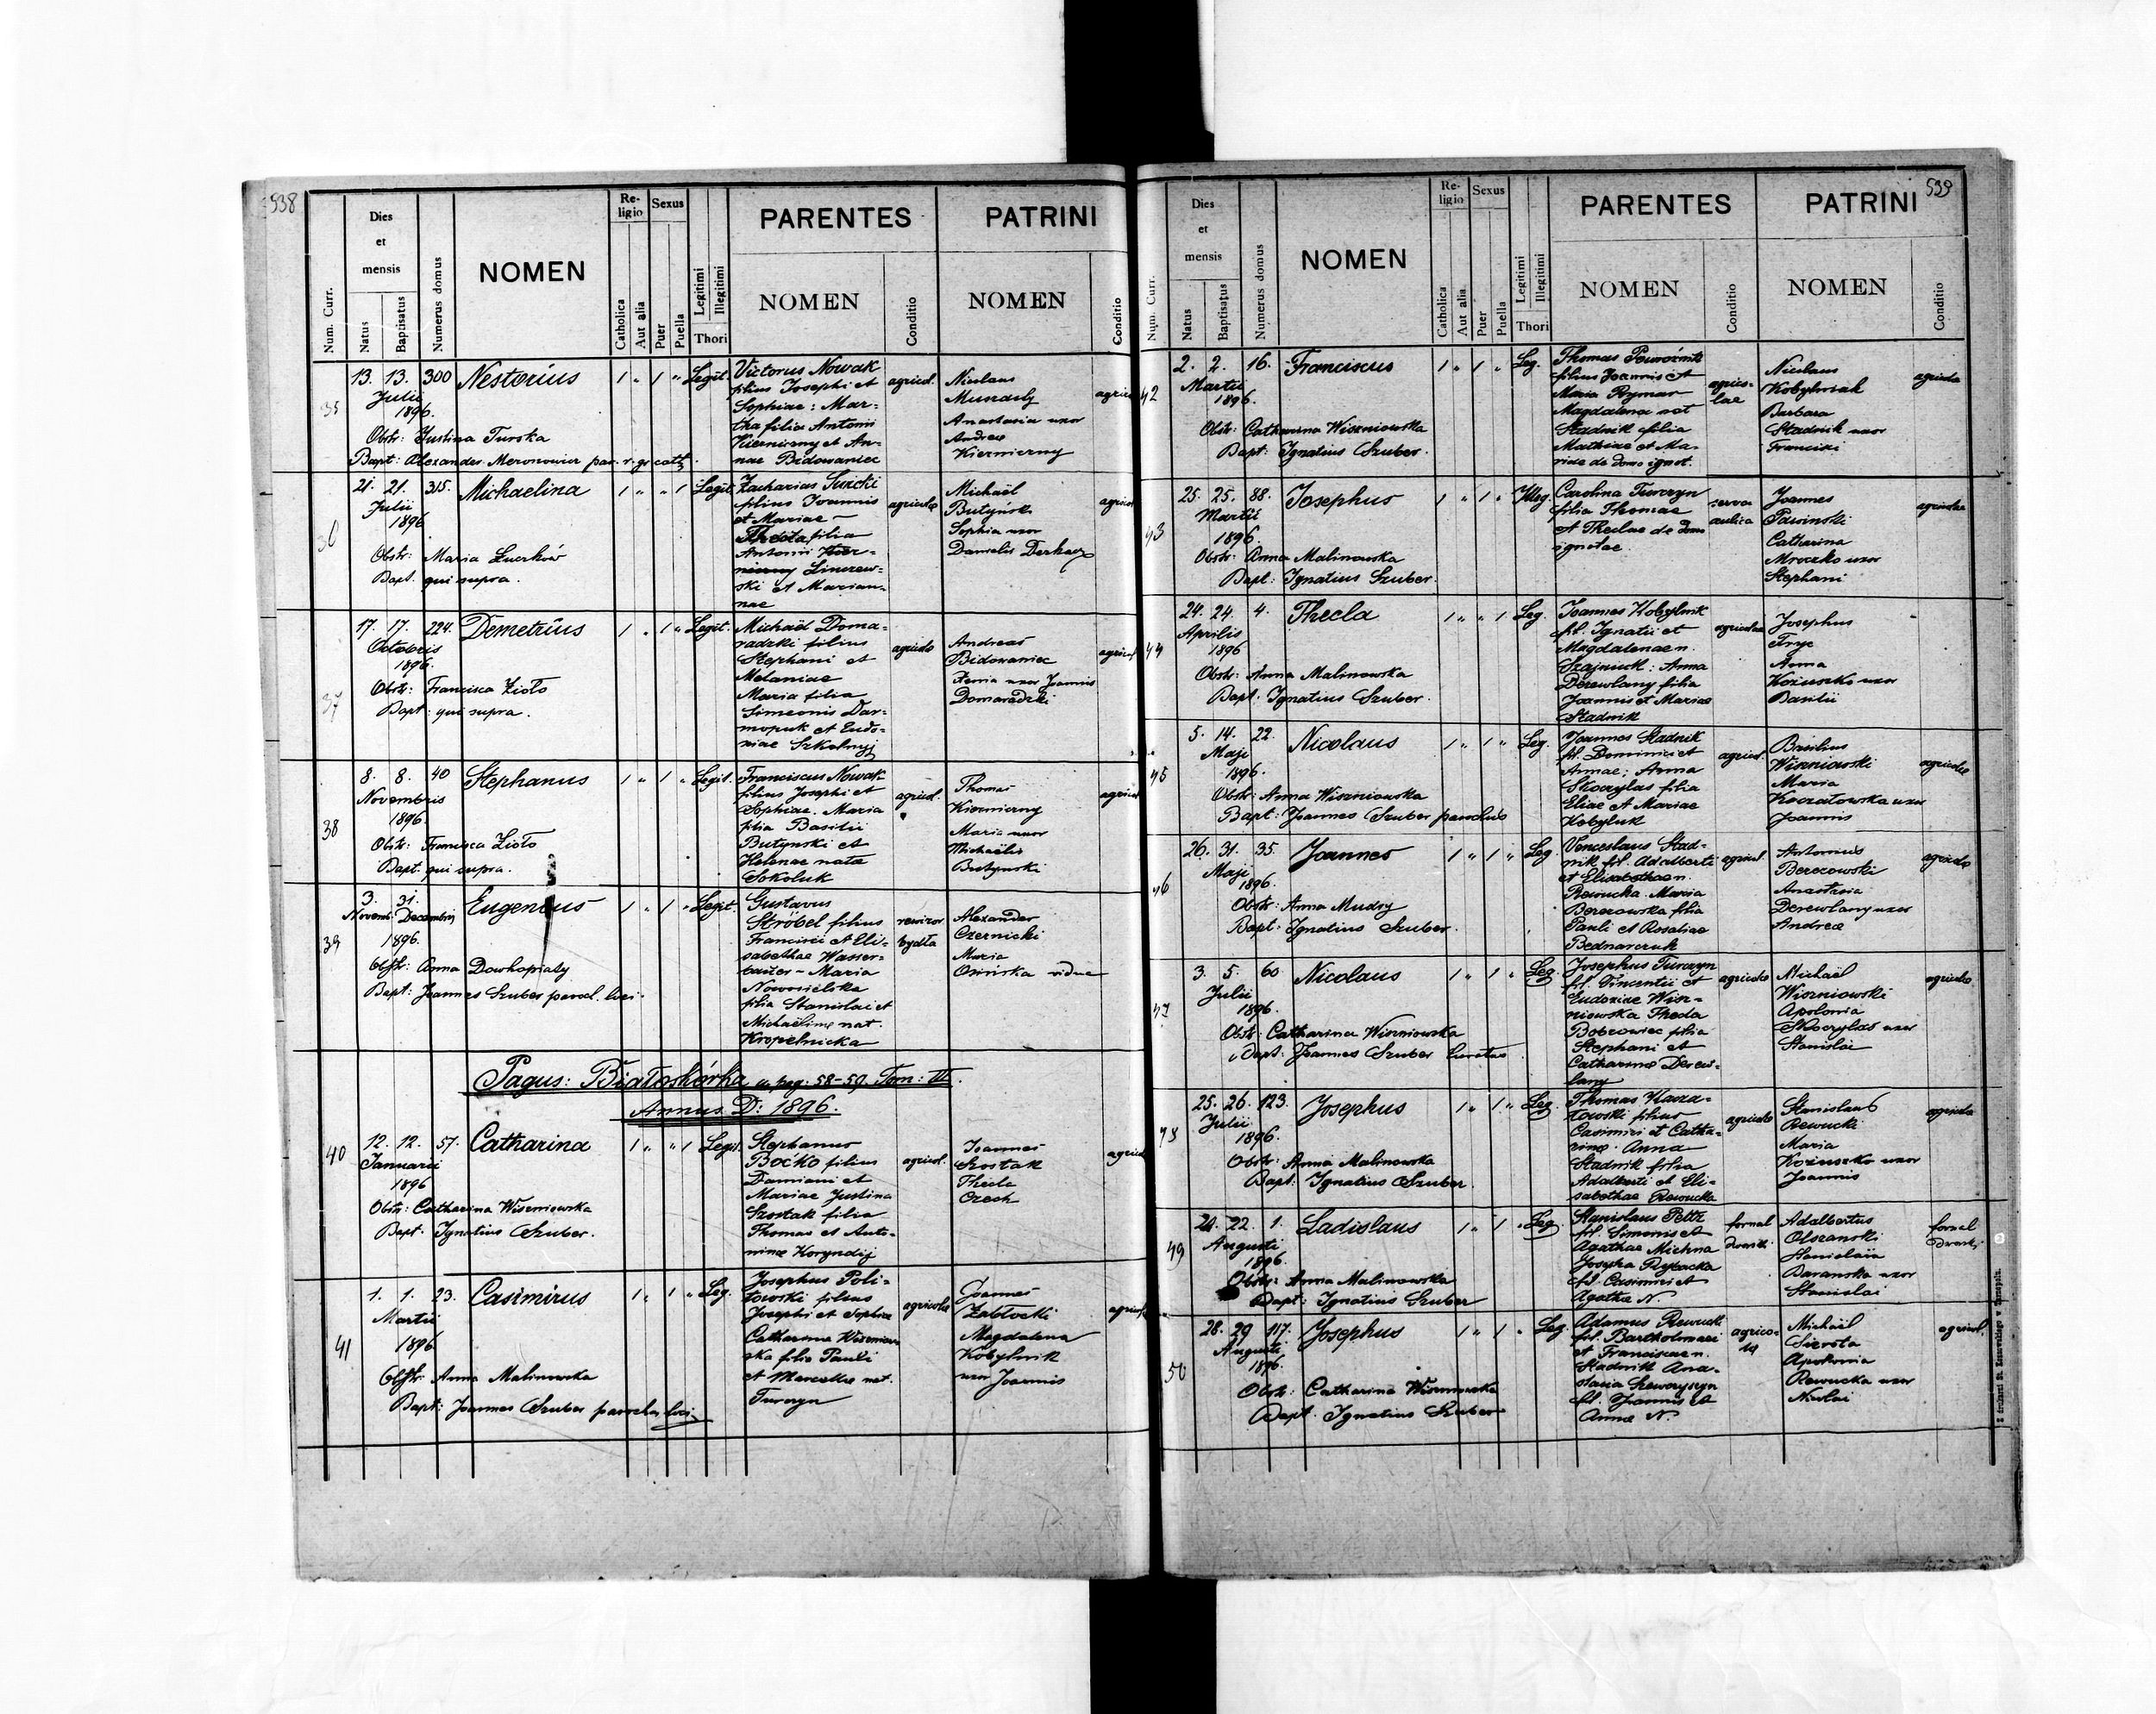 538
Num. Curr.
Dies et mensis
Natus
Bapisatus
Numerus domus
NOMEN
Religio
Catholica
Aut alia
Sexus
Puer
Puella
Legitimi
Illegitimi
Thori
PARENTES
NOMEN
Conditio
PATRINI
NOMEN
Conditio
35
13. 13. 300 Nestorius 1 " 1 " Legit.
Julii
1896.
Obstr: Justina Turska
Bapt: Alexander Meronowicz par. r. gr. cath.
Victorus Nowak
filius Josephi et
Sophiae: Mar-
tha filia Antoni
Kierniczny et An-
nae Bidowaniec
agricol.
Nicolaus
Anastasia uxor
Andreae
Kiernierny
21. 21. 315. Michaelina 1 " " 1 Legit.
Julii
1896
Obstr: Maria
Bapt. qui supra.
Zacharias
filius Joannis
et Mariae
Theota filia
Antonii
ski et Marian-
nae
agricolae
Michaël
Butyński
Sophia uxor
Danielis
37
17. 17. 224. Demetrius 1 " 1 " Legit.
Octobris
1896.
Obstr: Francisca Zioło
Bapt: qui supra.
Michaël Doma-
radzki filius
Stephani et
Melaniae
Maria filia
Simeonis Dar-
mopuk et Eudo-
niae Szkolnyj
agricola
Andreas
Bidowaniec
Xenia uxor Joannis
Domaradzki
38
8. 8. 40 Stephanus 1 " 1 " Legit.
Novembris
1896.
Obstr: Francisca Zioło
Bapt. qui supra.
Franciscus Nowak
filius Josephi et
Sophiae. Maria
filia Basilii
Butynski et
Helenae nata
Sokoluk
agricol.
Thomas
Kiernierny
Maria uxor
Michaëlis
Butynski
39
3. 31. Eugenius 1 " 1 " Legit.
Novemb. Decembris
1896.
Obstr: Anna Dowhopiaty
Bapt: Joannes Szuber paroch. loci.
Gustavus
Ströbel filius
Francisci et Eli-
sabethae Wasser-
bauer - Maria
Nowosielska
filia Stanislai et
Michaëlinae nat.
Kropelnicka
rewizor
bydła
Alexander
Czernicki
Maria
Osińska vidua
Pagus: Białoskórka u pag: 58-59. Tom: VI.
Annus D: 1896.
40
12. 12. 57. Catharina 1 " " 1 Legit.
Januarii
1896
Obstr: Catharina Wiszniowska
Bapt: Ignatius Szuber.
Stephanus
Boćko filius
Damiani et
Mariae Justina
Szostak filia
Thomae et Anto-
ninae Koryndij
agricol.
Joannes
Szostak
Thecla
Czech
41
1. 1. 23. Casimirus 1 " 1 " Leg.
Martii
1896
Obstr: Anna Malinowska
Bapt: Joannes Szuber parochus loci
Josephus Poli-
towski filius
Josephi et Sophiae
Catharina Wiszniow-
ska filia Pauli
et Marcellae nat.
Turczyn
agricolae
Joannes
Zabłocki
Magdalena
Kobylnik
uxor Joannis
539
Num. Curr.
Dies et mensis
Natus
Baptisatus
Numerus domus
NOMEN
Religio
Catholica
Aut alia
Sexus
Puer
Puella
Legitimi
Illegitimi
Thori
PARENTES
NOMEN
Conditio
PATRINI
NOMEN
Conditio
42
2. 2. 16. Franciscus 1 " 1 " Leg.
Martii
1896.
Obstr: Catharina Wiszniowska
Bapt: Ignatius Szuber.
Thomas
filius Joannis et
Maria Rymar
Magdalena nat
Stadnik filia
Mathiae et Ma-
riae de domo ignot.
agrico-
lae
Nicolaus
Kobylniak
Barbara
Stadnik uxor
Francisci
agricola
43
25. 25. 88. Josephus 1 " 1 " Illeg.
Martii
1896.
Obstr: Anna Malinowska
Bapt: Ignatius Szuber.
Carolina Turczyn
filia Thomae
et Theclae de domo
ignotae.
serva
aulica
Joannes
Catharina
Mroczko uxor
Stephani
agricolae
44
24. 24. 4. Thecla 1 " " 1 Leg.
Aprilis
1896
Obstr: Anna Malinowska
Bapt: Ignatius Szuber.
Joannes Kobylnik
fil. Ignatii et
Magdalenae n.
Szajnuk: Anna
Derewlany filia
Joannis et Mariae
Stadnik
agricolae
Josephus
Anna
Kożuszko uxor
Basilii
45
5. 14. 22. Nicolaus 1 " 1 " Leg.
Maji
1896.
Obstr: Anna Wiszniowska
Bapt: Joannes Szuber parochus
Joannes Stadnik
fil. Dominici et
Annae; Anna
Skoczylas filia
Eliae et Mariae
Kobyluk
agricol.
Basilius
Wiszniowski
Maria
Koczałowska uxor
Joannis
agricolae
46
26. 31. 35. Joannes 1 " 1 " Leg.
Maji
1896.
Obstr: Anna Mudry
Bapt: Ignatius Szuber.
Venceslaus Stad-
nik fil. Adalberti
et Elisabethae n.
Rewucka. Maria
Berezowska filia
Pauli et Rosaliae
Bednarczuk
agricol.
Antonius
Berezowski
Anastasia
Derewlany uxor
Andreae
agricola
47
3. 5. 60 Nicolaus 1 " 1 " Leg.
Julii
1896.
Obstr: Catharina Wiszniowska
Bapt: Joannes Szuber Curatus.
Josephus Turczyn
fil. Vincentii et
Eudoxiae Wisz-
niowska Thecla
Bobrowiec filia
Stephani et
Catharinae Derew-
lany
agricola
Michaël
Wiszniowski
Apolonia
Skoczylas uxor
Stanislai
agricola
48
25. 26. 123. Josephus 1 " 1 " Leg.
Julii
1896.
Obstr: Anna Malinowska
Bapt: Ignatius Szuber.
Thomas
filius
Casimiri et Catha-
rinae. Anna
Stadnik filia
Adalberti et Eli-
sabethae Rewucka
agricola
Stanislaus
Rewucki
Maria
Kożuszko uxor
Joannis
agricola
49
22. 1. Ladislaus 1 " 1 " Leg.
Augusti
1896.
Obstr: Anna Malinowska
Bapt: Ignatius Szuber
Stanislaus Peltz
fil. Simonis et
Agathae Michna
Josepha Rybacka
fil. Casimiri et
Agathae N.
fornal
dworski
Adalbertus
Olszanski
Stanislaia
Baranska uxor
Stanislai
fornal
dworski
50
28. 29 117. Josephus 1 " 1 " Leg.
Augusti
1896.
Obstr: Catharina Wiszniowska
Bapt. Ignatius Szuber
Adamus Rewucki
fil. Bartholomaei
et Franciscae n.
Stadnik Ana-
stasia
fil. Joannis et
Annae N.
agrico-
la
Michaël
Sierota
Apolonia
Rewucka uxor
Nicolai
agricol.
Z drukarni St. Kossowskiego w Tarnopolu.